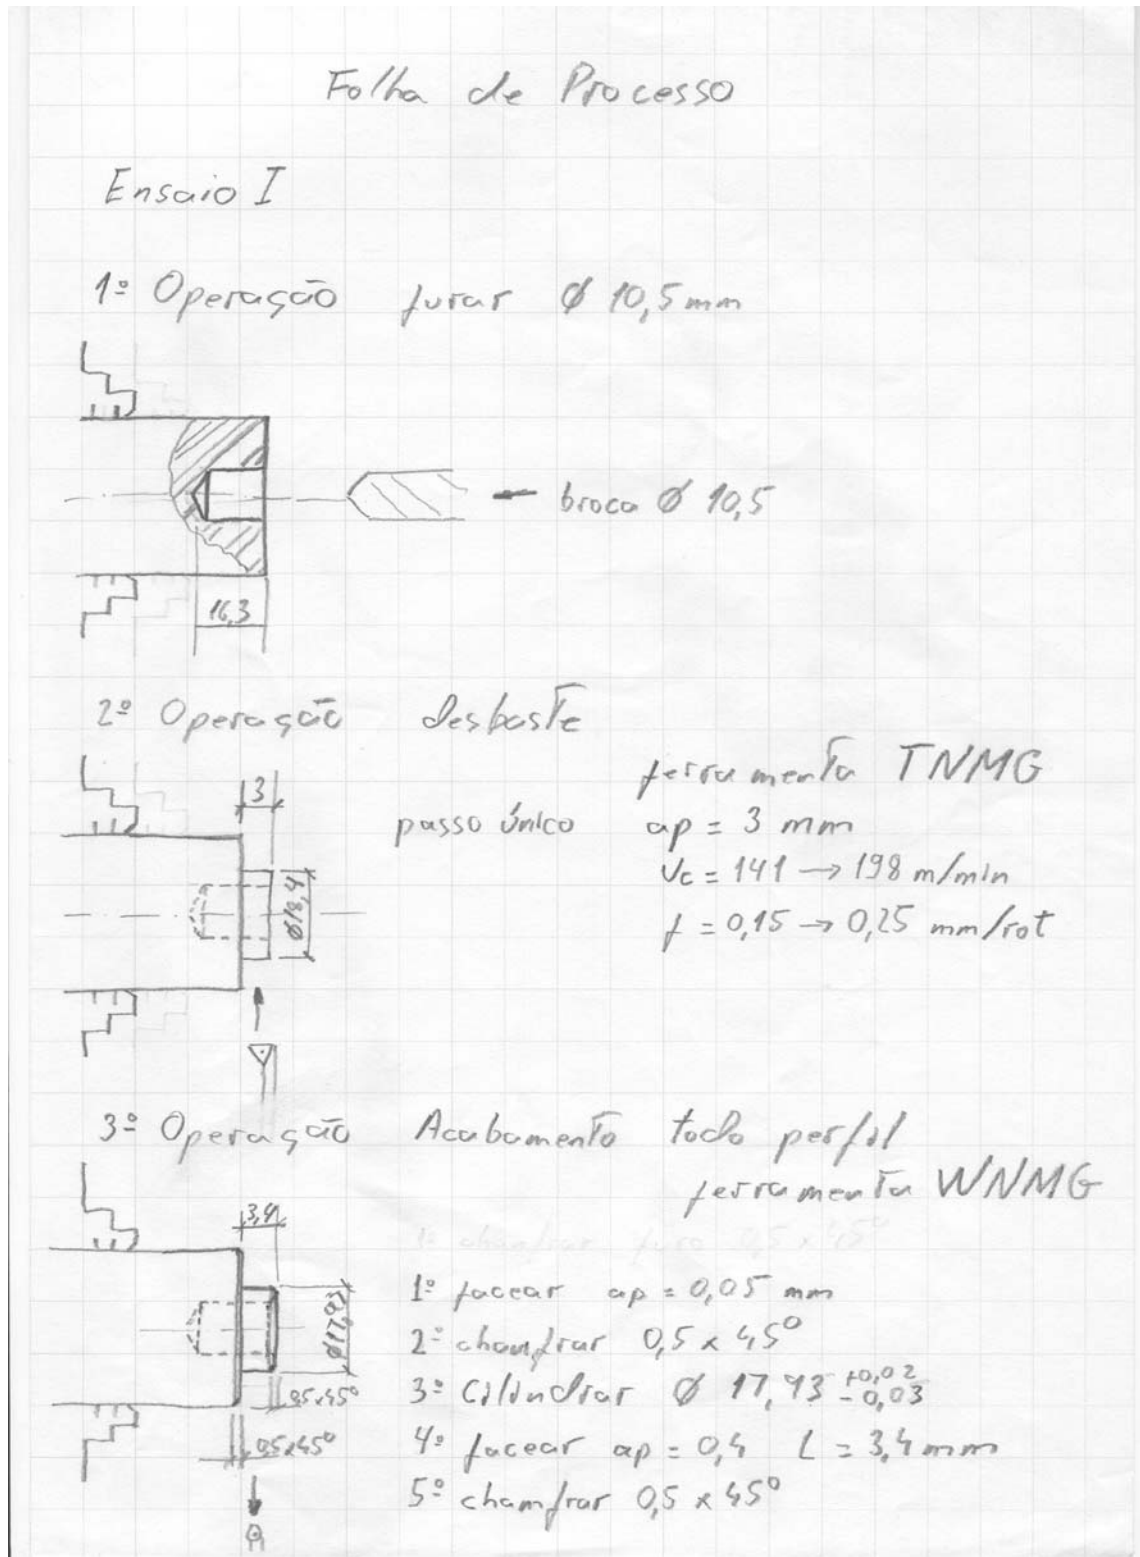 Folha de Processo
Ensaio I
1º Operação furar Ø 10,5 mm
broca Ø 10,5
16,3
2º Operação desbaste
ferramenta TNMG
3
passo único ap = 3 mm
Vc = 141 → 198 m/min
Ø18,4
f = 0,15 → 0,25 mm/rot
3º Operação Acabamento todo perfil
ferramenta WNMG
3,4
1º chanfrar furo 0,5 x 45º
1º facear ap = 0,05 mm
Ø17,93
2º chanfrar 0,5 x 45º
3º Cilindrar Ø 17,93 +0,02 -0,03
0,5x45º
4º facear ap = 0,4 L = 3,4 mm
0,5x45º
5º chanfrar 0,5 x 45º